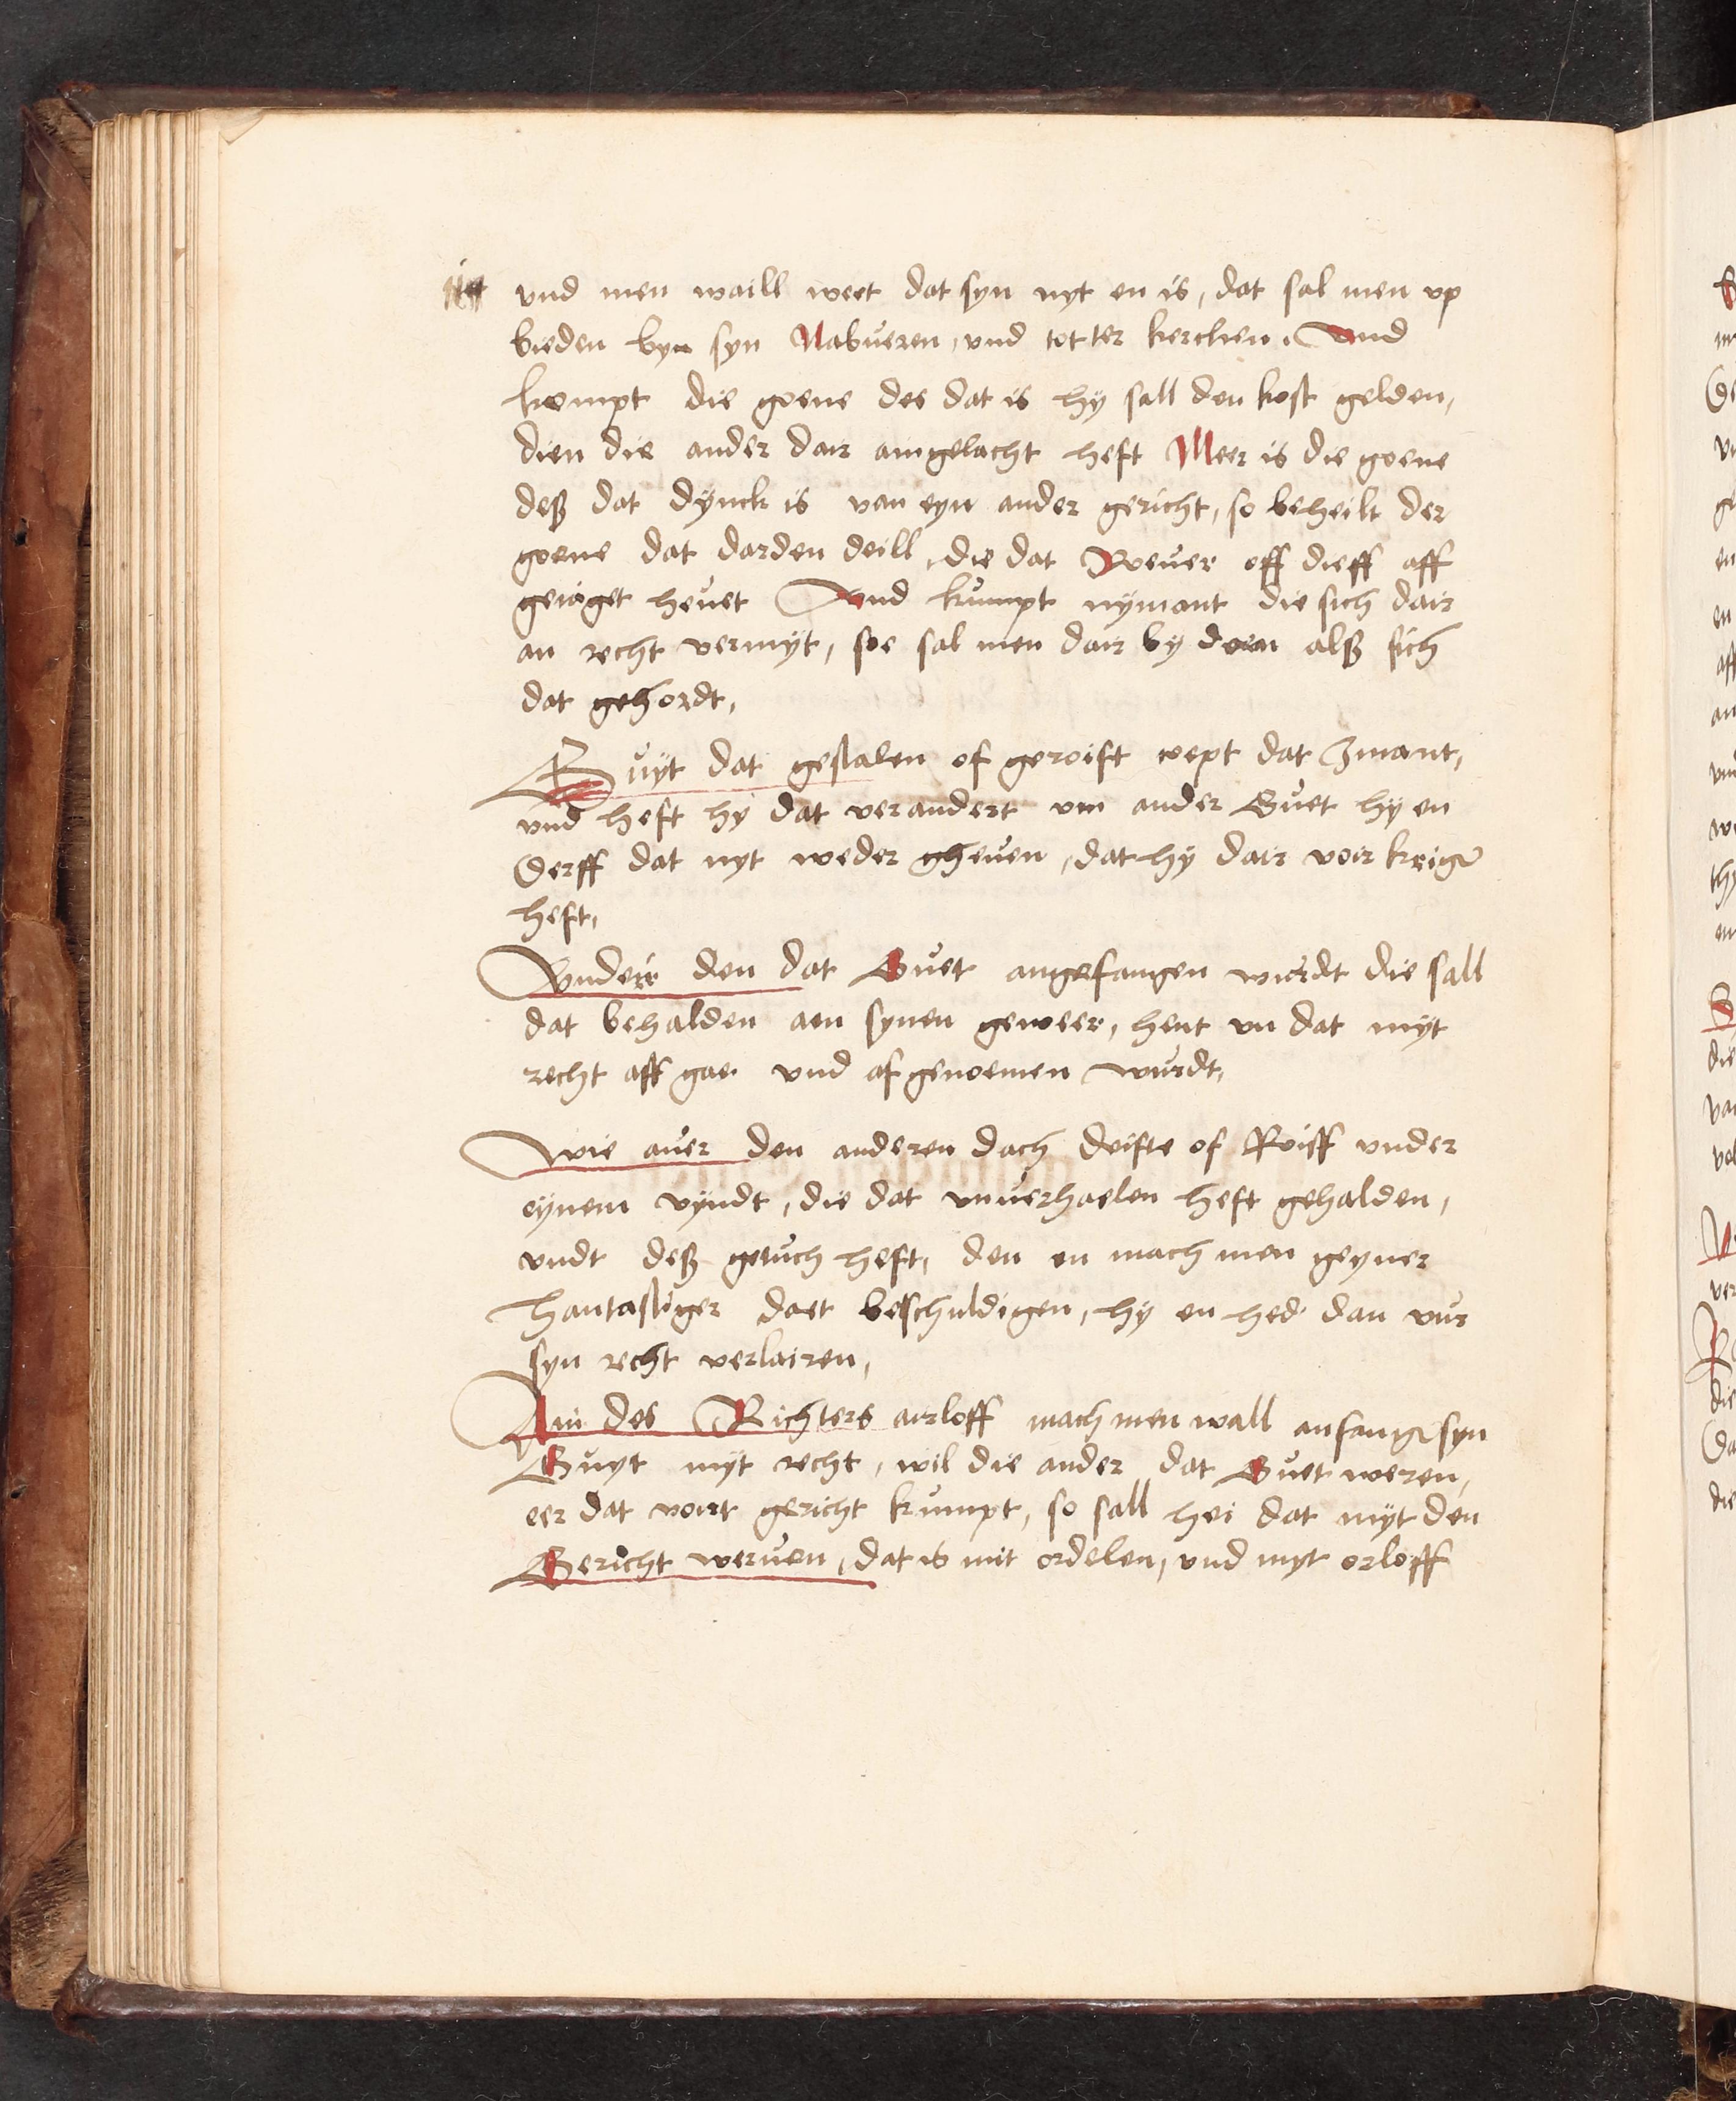 vnd men waill weet dat syn nyt en is, dat sal men vp
bieden byn syn Nabueren, vnd totter kerchen. Vnd
kompt die goene des dat is hy sall den kost gelden,
dien die ander dair aingelacht heft Meer is die goene
deß dat dynck is van eyn ander gericht, so beheilt der
goene dat darden deill, die dat Roeuer off dieff aff
geiaget heuet Vnd kumpt nymant die sich dair
an recht vermyt, soe sal men dair by doen alß sich
dat gehordt,
Guyt dat gestalen of geroift wept dat Jmant,
vnd heft hy dat verandert vm ander Guet hy en
Derff dat nyt weder gheuen, dat hy dair voir kreigen
heft,
Vnderr den dat Guet angefangen wurdt die sall
dat behalden aen synen geweer, hent vn dat myt
recht aff gae vnd af genoemen wurdt,
Wie auer den anderen dach deifte of Roiff vnder
eynem vyndt, die dat vnverhaelen heft gehalden,
vndt deß getuch heft, den en mach men geyner
hantastiger daet beschuldigen, hy en hed dan vur
syn recht verlairen,
Ain des Richters airloff mach men wall anfangen syn
Guyt myt recht, wil die ander dat Guet weren,
eer dat voirt gericht kumpt, so sall hei dat myt den
Gericht weruen, dat is mit ordelen, vnd myt orloff